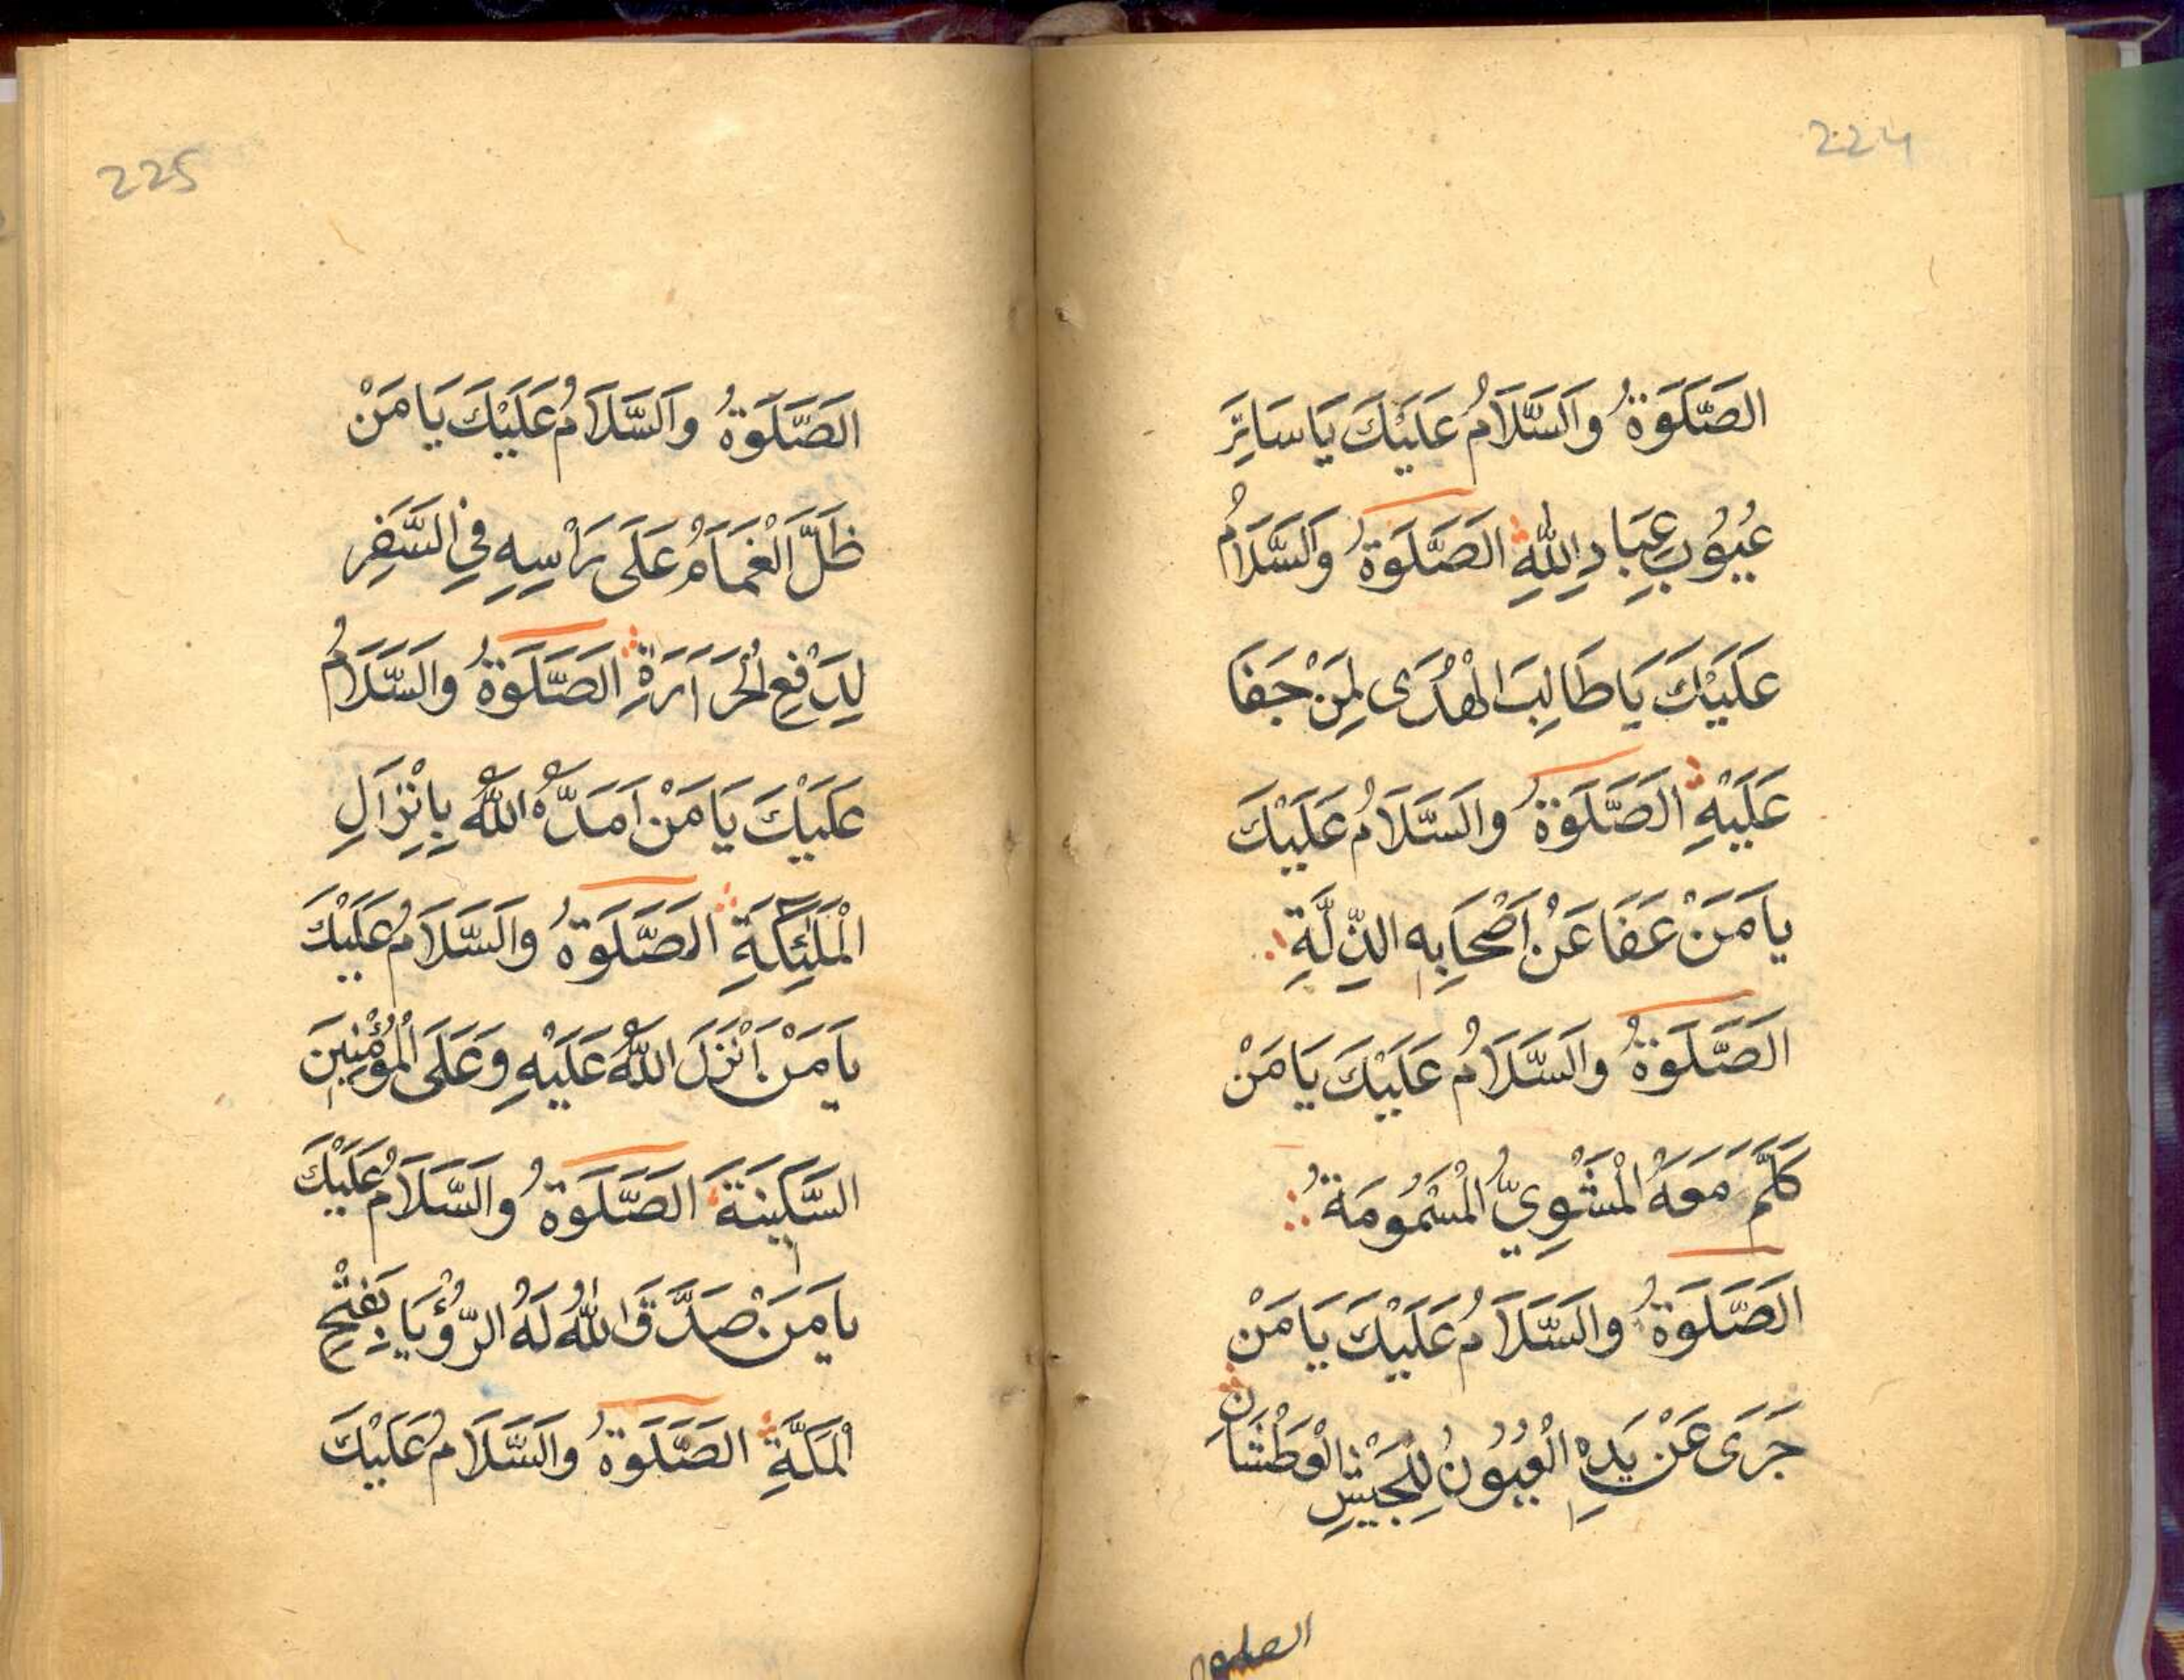 224
الصَّلَوٰةُ وَالسَّلَامُ عَلَيْكَ يَا سَاتِرَ
عُيُوْبِ عِبَادِ اللّٰهِ الصَّلَوٰةُ وَالسَّلَامُ
عَلَيْكَ يَا طَالِبَ الْهُدَى لِمَنْ جَفَا
عَلَيْهِ الصَّلَوٰةُ وَالسَّلَامُ عَلَيْكَ
يَا مَنْ عَفَا عَنْ اَصْحَابِهِ الذِّلَّةِ
الصَّلَوٰةُ وَالسَّلَامُ عَلَيْكَ يَا مَنْ
كَلَّمَ مَعَهُ الْمَشْوِيُّ الْمَسْمُومَةُ
الصَّلَوٰةُ وَالسَّلَامُ عَلَيْكَ يَا مَنْ
جَرَى عَنْ يَدِهِ الْعُيُوْنُ لِلْجَيْشِ الْعَطْشَانِ
الصلوة
225
الصَّلَوٰةُ وَالسَّلَامُ عَلَيْكَ يَا مَنْ
ظَلَّ الْغَمَامُ عَلَى رَاْسِهِ فِي السَّفَرِ
لِدَفْعِ الْحَرَارَةِ الصَّلَوٰةُ وَالسَّلَامُ
عَلَيْكَ يَا مَنْ اَمَدَّهُ اللّٰهُ بِاِنْزَالِ
الْمَلٰٓئِكَةِ الصَّلَوٰةُ وَالسَّلَامُ عَلَيْكَ
يَا مَنْ اَنْزَلَ اللّٰهُ عَلَيْهِ وَعَلَى الْمُؤْمِنِيْنَ
السَّكِيْنَةَ الصَّلَوٰةُ وَالسَّلَامُ عَلَيْكَ
يَا مَنْ صَدَّقَ اللّٰهُ لَهُ الرُّؤْيَا بِفَتْحِ
الْمَكَّةِ الصَّلَوٰةُ وَالسَّلَامُ عَلَيْكَ